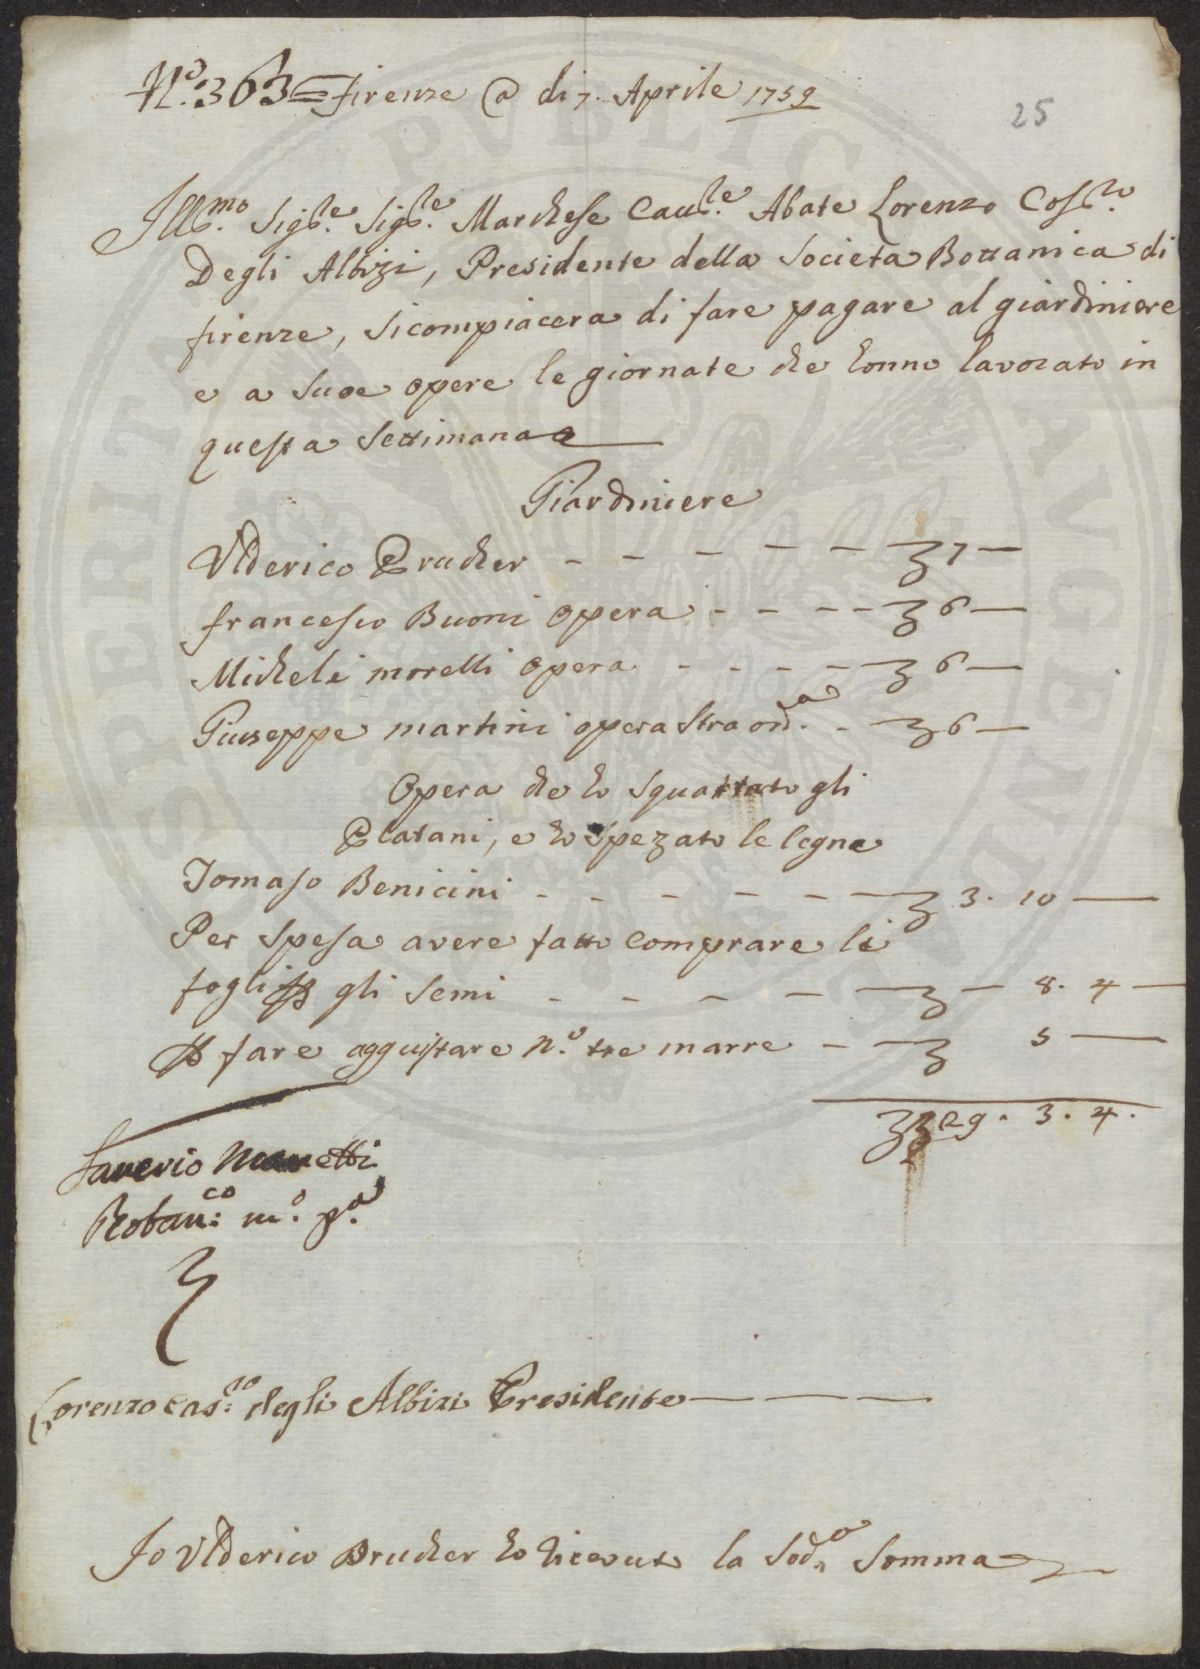 N.o 363= firenze @ di 7. Aprile 1759
25
Ill.mo Sig.re Sig.re Marchese Cav.re Abate Lorenzo Cos.to
Degli Albizi, Presidente della Societa Bottanica di
firenze, si compiacera di fare pagare al giardiniere
e a sue opere le giornate che honno lavorato in
questa Settimana
Giardiniere
Vlderico Prucher - - - - - 7 —
francesco Buoni opera - - - - 6 —
Micheli morelli opera - - - - 6 —
Giuseppe martini opera Straord.a - 6 —
Opera che ho squattato gli
Platani, e ho spezato le legne
Tomaso Benicini - - - - - 3. 10 —
Per Spesa avere fatto comprare li
fogli p gli Semi - - - - — 8. 4 —
p fare agguistare N.o tre marre - 5 —
29. 3. 4.
Saverio Manetti
Botan:co m.o p.a
Lorenzo Cas:to degli Albizi Presidente
Io Vlderico Prucher ho ricevuto la Sod.a Somma